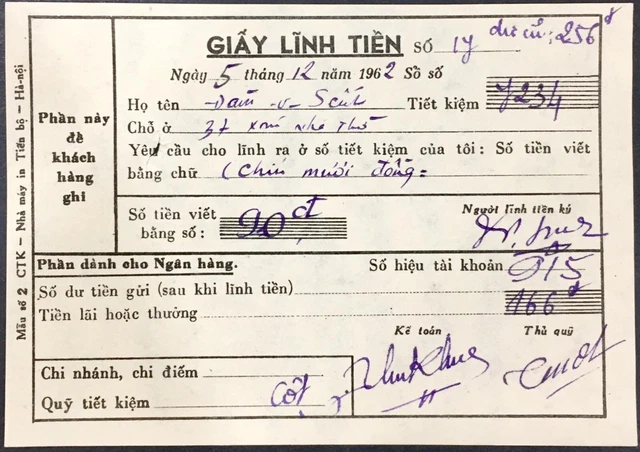 GIẤY LĨNH TIỀN SỐ 17 dư cũ: 256đ
Ngày 5 tháng 12 năm 1962 Sổ số
Họ tên Tiết kiệm 7234
Chỗ ở 37 xóm nhà thờ
Yêu cầu cho lĩnh ra ở sổ tiết kiệm của tôi: Số tiền viết
bằng chữ (Chín mươi đồng =
Phần này
đề
khách
hàng
ghi
Số tiền viết
bằng số: 90đ
Người lĩnh tiền ký
Phần dành cho Ngân hàng.
Số hiệu tài khoản 915
Số dư tiền gửi (sau khi lĩnh tiền) 166đ
Tiền lãi hoặc thưởng
Kế toán Thủ quỹ
Chi nhánh, chi điểm
Quỹ tiết kiệm
Mẫu số 2 CTK — Nhà máy in Tiến bộ — Hà-nội